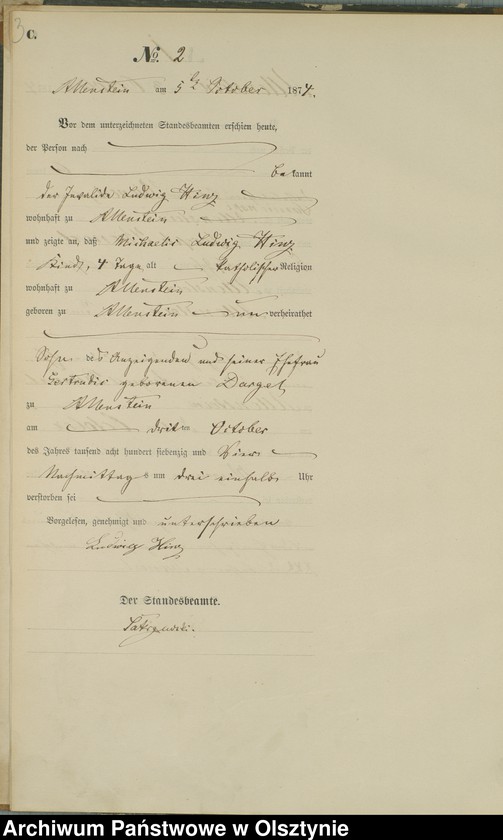 3
C.
№ 2
Allenstein am 5ten October 1874.
Vor dem unterzeichneten Standesbeamten erschien heute,
der Person nach
bekannt
der Invalide Ludwig Hinz
wohnhaft zu Allenstein
und zeigte an, daß Michaelis Ludwig Hinz
Kind, 4 Tage alt katholischer Religion
wohnhaft zu Allenstein
geboren zu Allenstein unverheirathet
Sohn des Anzeigenden und seiner Ehefrau
Gertrudis geborenen Darget
zu Allenstein
am dritten October
des Jahres tausend acht hundert siebenzig und Vier
Nachmittags um drei einhalb Uhr
verstorben sei
Vorgelesen, genehmigt und unterschrieben
Ludwig Hinz
Der Standesbeamte.
Archiwum Państwowe w Olsztynie